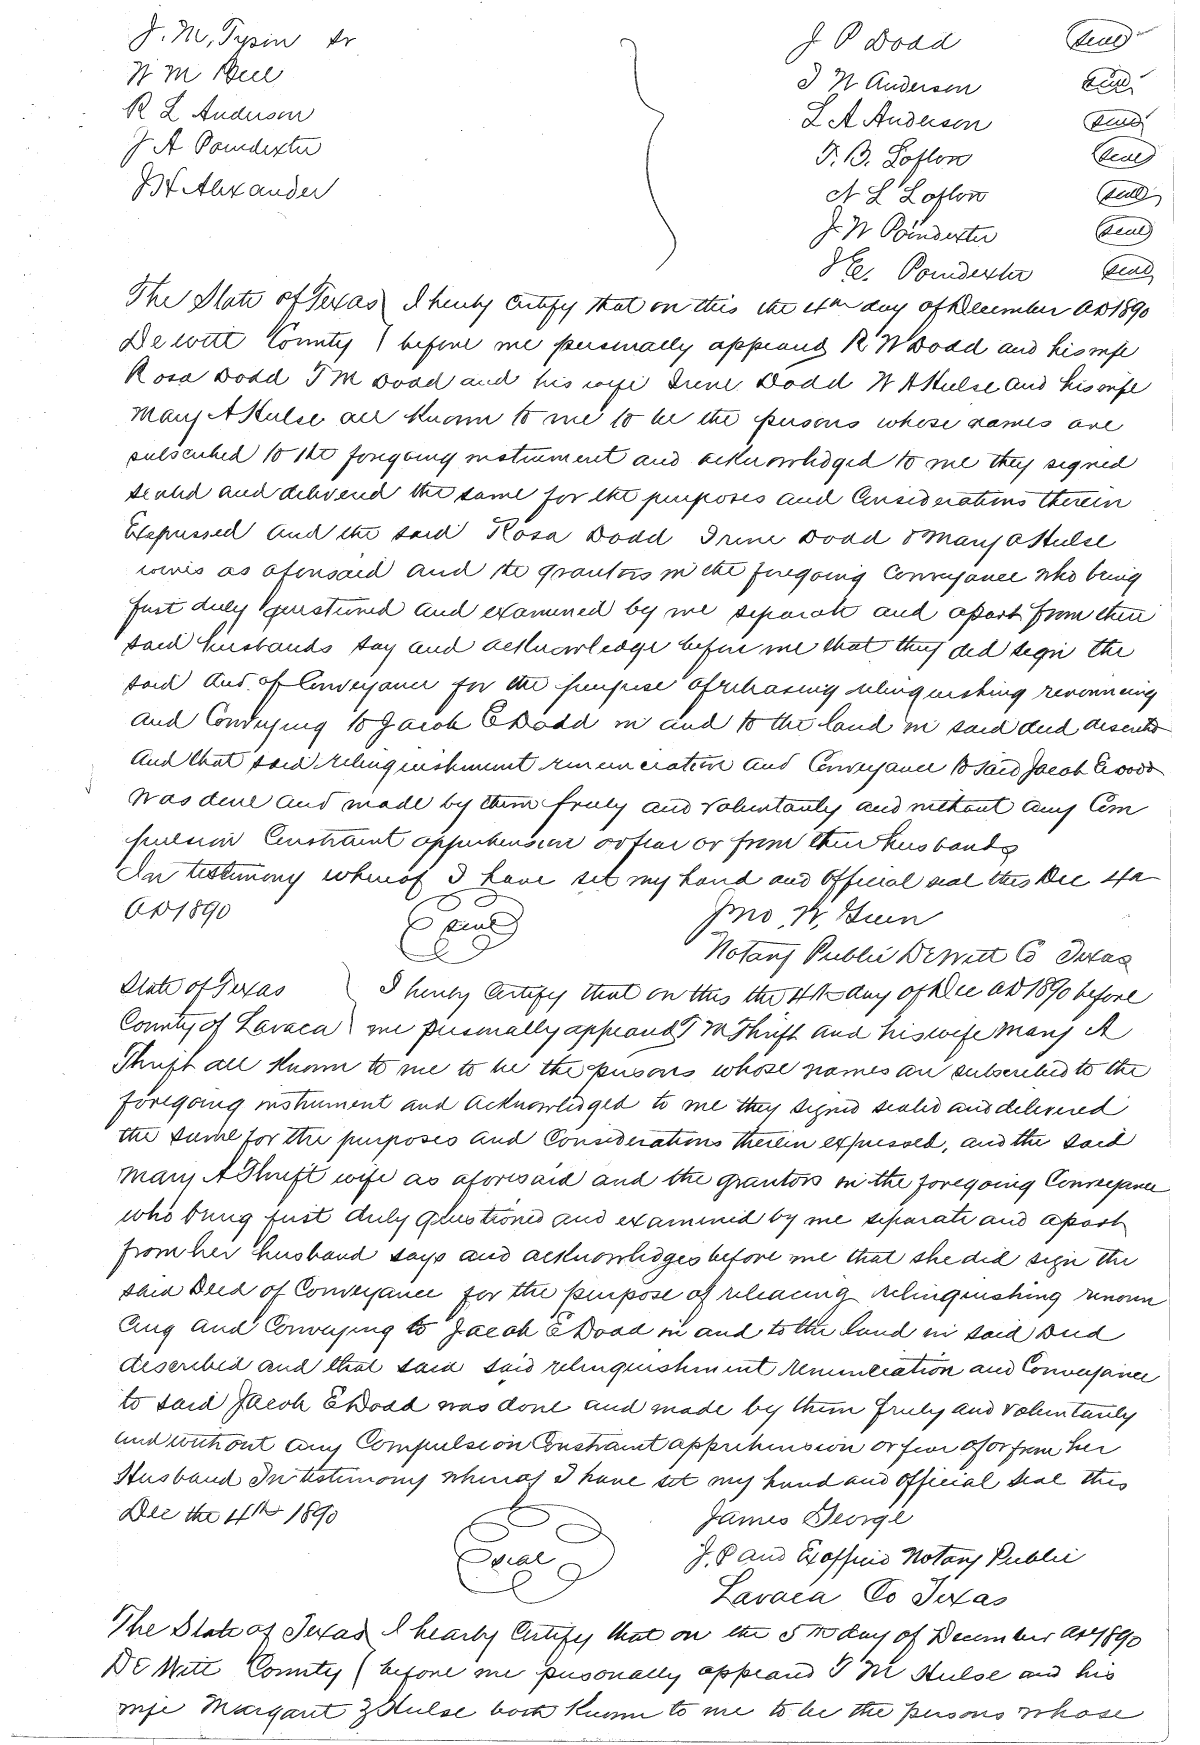 J. M. Tysin Sr
W M Bell
R L Anderson
J A Poindexter
J H Alexander
J P Dodd seal
J N Anderson seal
L A Anderson seal
T. B. Loflon seal
N L Loflon seal
J W Poindexter seal
J E. Poindexter seal
The State of Texas I hereby Certify that on this the 4th day of December AD 1890
De witt County before me personally appeared R W Dodd and his wife
Rosa Dodd T M Dodd and his wife Irene Dodd W A Hulse and his wife
Mary A Hulse all Known to me to be the persons whose names are
subscribed to the foregoing instrument and acknowledged to me they signed
sealed and delivered the same for the purposes and Considerations therein
Expressed and the said Rosa Dodd Irene Dodd & Mary A Hulse
wives as aforesaid and the grantors in the foregoing Conveyance who being
fust duly questioned and examined by me separate and apart from their
said husbands say and acknowledge before me that they did sign the
said deed of Conveyance for the purpose of releasing relinquishing renouncing
and Conveying to Jacob E Dodd in and to the land in said deed described
And that said relinquishment renunciation and Conveyance to said Jacob E Dodd
was done and made by them fruly and voluntarily and without any Com
pulsion Constraint apprehension or fear or from their husbands
In testimony whereof I have set my hand and Official seal this Dec 4th
AD 1890 seal Jno. W. Green
Notary Public DeWitt Co Texas
State of Texas I hereby Certify that on this the 4th day of Dec AD 1890 before
County of Lavaca me personally appeared T M Thrift and his wife Mary A
Thrift all Known to me to be the persons whose names are subscribed to the
foregoing instrument and acknowledged to me they signed sealed and delivered
the same for the purposes and Considerations therein expressed, and the said
Mary A Thrift wife as aforesaid and the grantors in the foregoing Conveyance
who being fust duly questioned and examined by me separate and apart
from her husband says and acknowledges before me that she did sign the
said Deed of Conveyance for the purpose of releacing relinquishing renoun
cing and Conveying to Jacob E Dodd in and to the land in said Deed
described and that said said relinquishment renunciation and Conveyance
to said Jacob E Dodd was done and made by them fruly and voluntarily
and without any Compulsion Constraint apprehension or fear of or from her
Husband In testimony whereof I have set my hand and official seal this
Dec the 4th 1890 seal James George
J. P and Exofficio Notary Public
Lavaca Co Texas
The State of Texas I hearby Certify that on the 5th day of December AD 1890
De Witt County before me pusonally appeared T M Hulse and his
wife Margaret Z Hulse both Known to me to be the persons whose